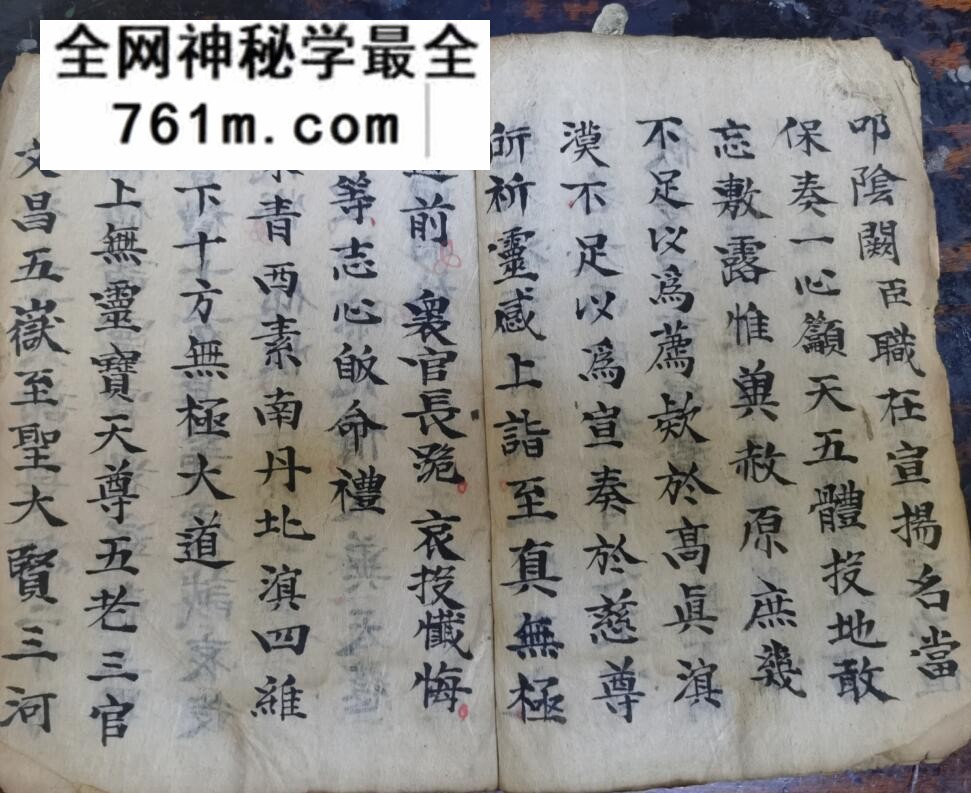 全网神秘学最全
761m.com
叩陰闕臣職在宣揚名當
保奏一心籲天五體投地敢
忘敷露惟兾赦原庶幾
不足以為薦欵於高眞滇
漠不足以為宣奏於慈尊
所祈靈感上詣至真無極
前 衆官長跪 哀投懺悔
等志心皈命禮
青西素南丹北滇四維
下十方無極大道
上無靈寶天尊五老三官
文昌五嶽至聖大賢三河